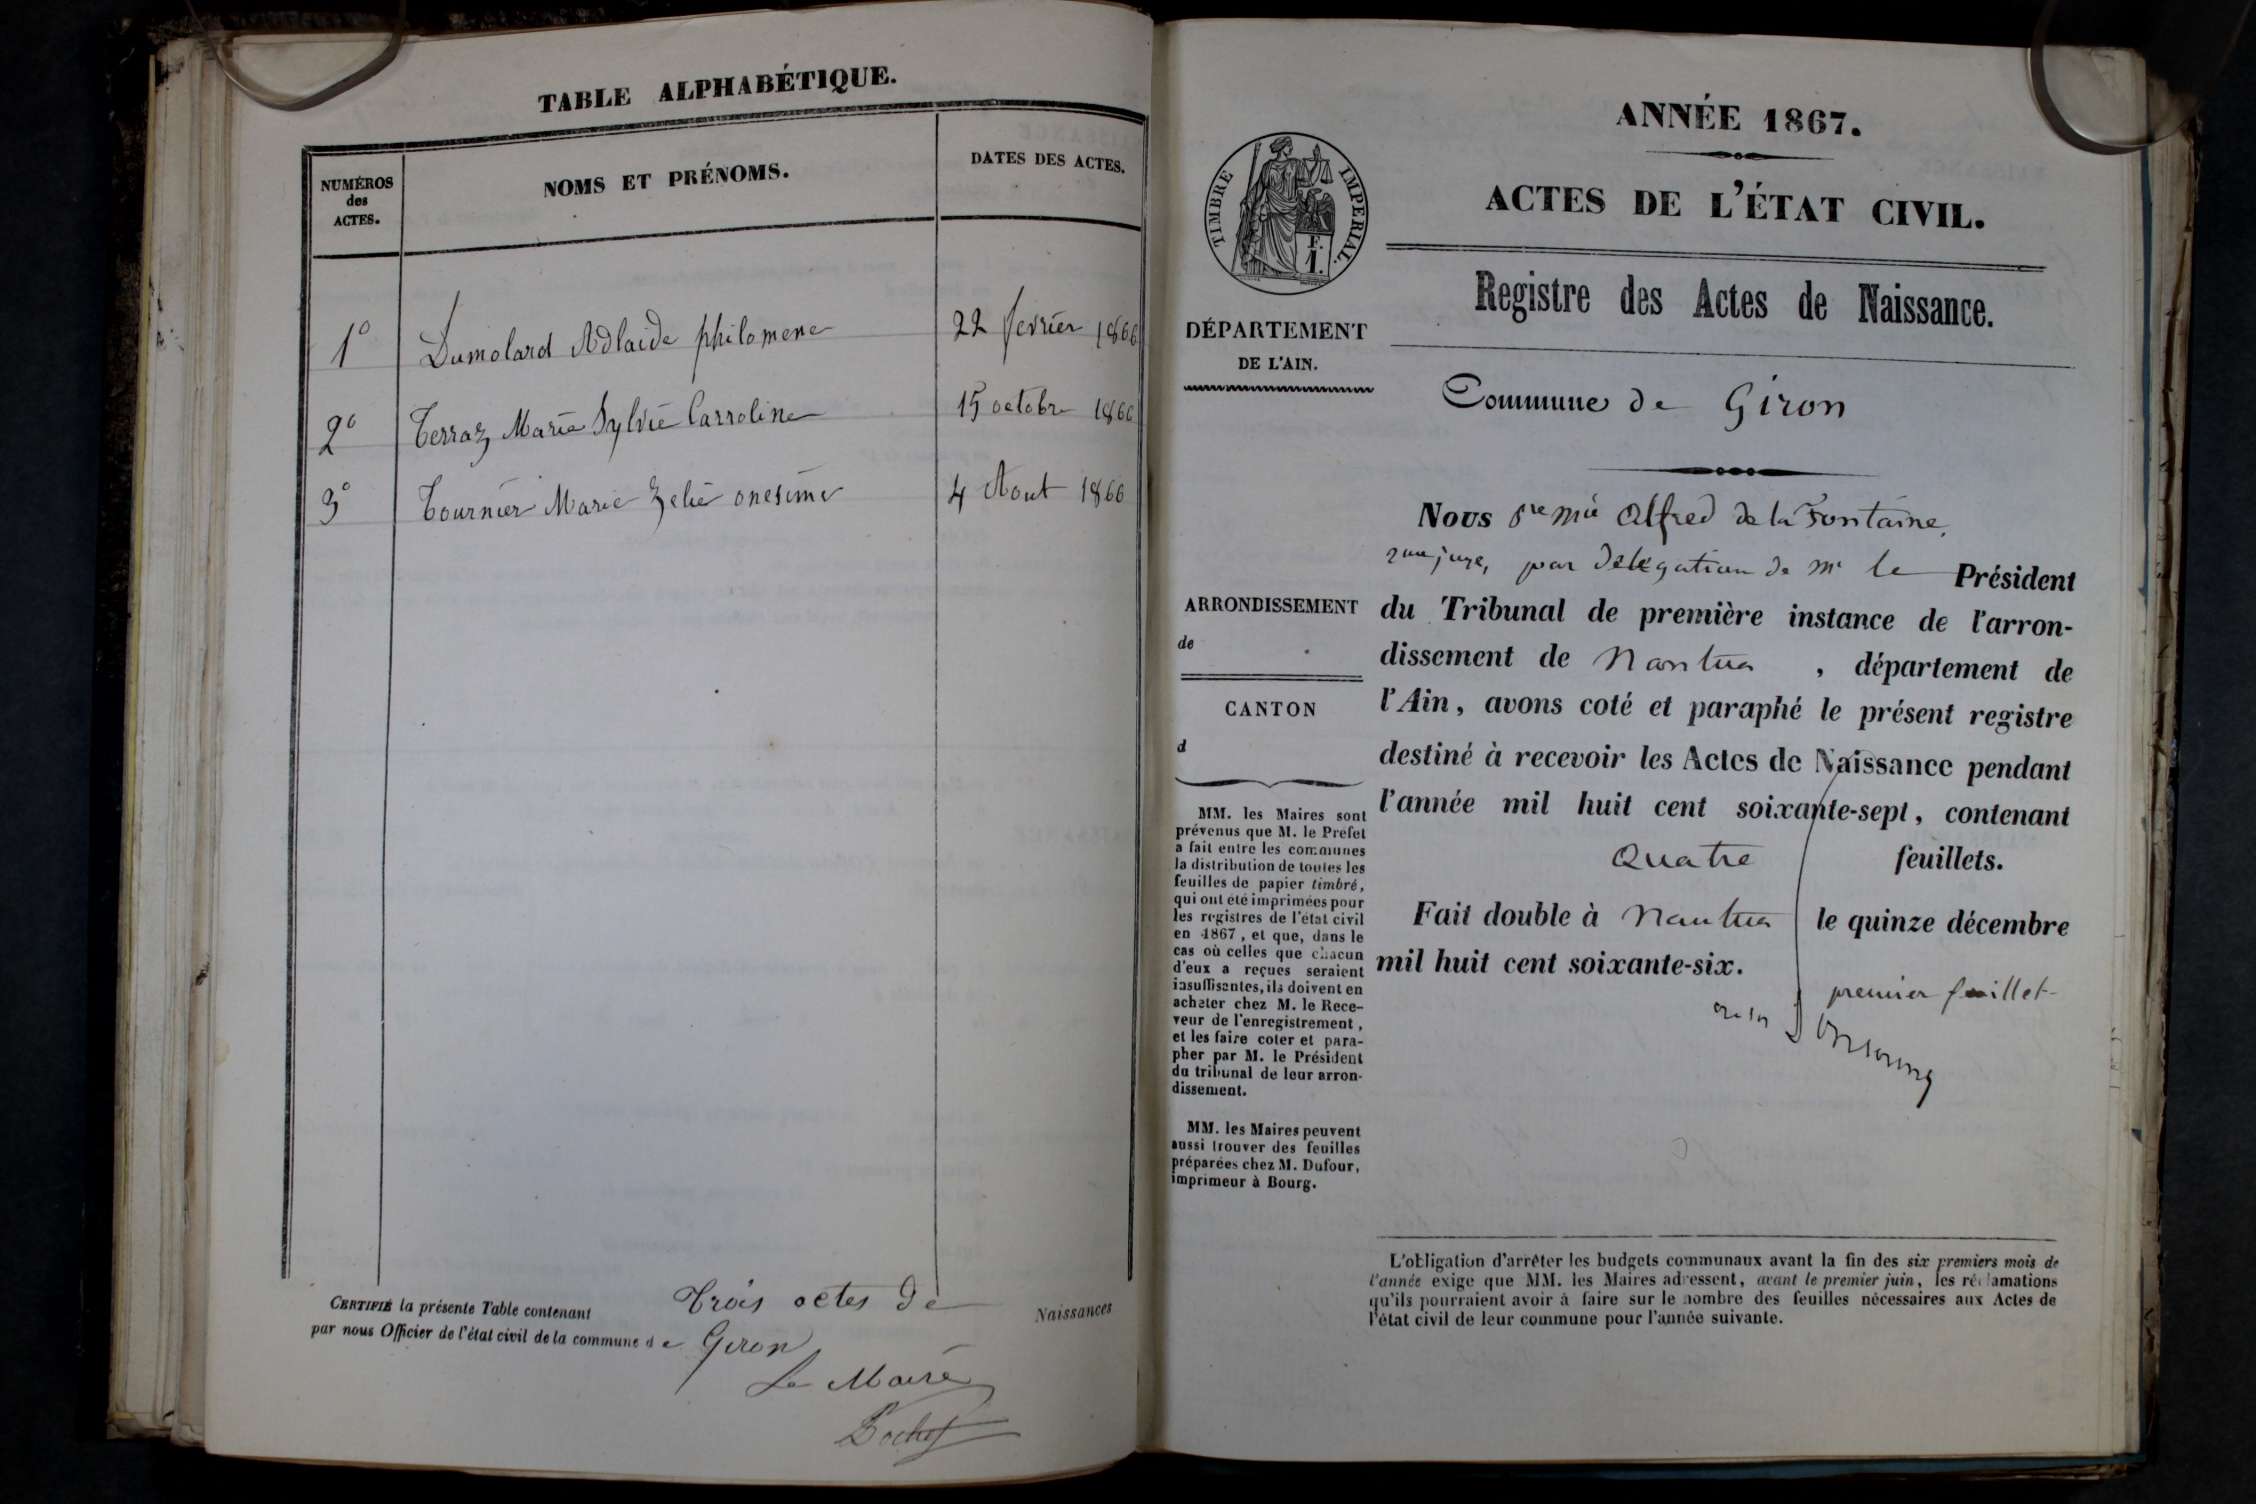 TABLE ALPHABÉTIQUE.
NUMÉROS
des
ACTES.
NOMS ET PRÉNOMS.
DATES DES ACTES.
1° Dumolard Adlaide philomene 22 fevrier 1866
2° Terraz Marie Sylvie Carroline 15 octobre 1866
3° Tournier Marie Zelie onesime 4 Aout 1866
CERTIFIÉ la présente Table contenant Trois actes de Naissances
par nous Officier de l'état civil de la commune de Giron
Le Maire
Bochet
ANNÉE 1867.
ACTES DE L'ÉTAT CIVIL.
TIMBRE IMPERIAL.
F.
1.
Registre des Actes de Naissance.
DÉPARTEMENT
DE L'AIN.
Commune de Giron
Nous Alfred de la Fontaine,
juge, par délégation de Mr le Président
du Tribunal de première instance de l'arron-
dissement de Nantua, département de
l'Ain, avons coté et paraphé le présent registre
destiné à recevoir les Actes de Naissance pendant
l'année mil huit cent soixante-sept, contenant
Quatre feuillets.
Fait double à Nantua le quinze décembre
mil huit cent soixante-six.
premier feuillet
ARRONDISSEMENT
de
CANTON
d
MM. les Maires sont
prévenus que M. le Préfet
a fait entre les communes
la distribution de toutes les
feuilles de papier timbré,
qui ont été imprimées pour
les registres de l'état civil
en 1867, et que, dans le
cas où celles que chacun
d'eux a reçues seraient
insuffisantes, ils doivent en
acheter chez M. le Rece-
veur de l'enregistrement,
et les faire coter et para-
pher par M. le Président
du tribunal de leur arron-
dissement.
MM. les Maires peuvent
aussi trouver des feuilles
préparées chez M. Dufour,
imprimeur à Bourg.
L'obligation d'arrêter les budgets communaux avant la fin des six premiers mois de
l'année exige que MM. les Maires adressent, avant le premier juin, les réclamations
qu'ils pourraient avoir à faire sur le nombre des feuilles nécessaires aux Actes de
l'état civil de leur commune pour l'année suivante.